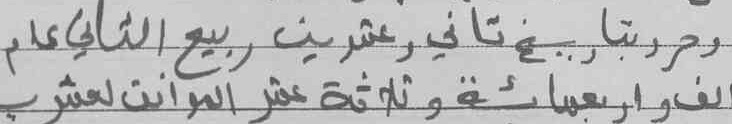 وحرر بتاريخ ثاني وعشرين ربيع الثاني عام
الف واربعمائة وثلاثة عشر الموافق لعشرين